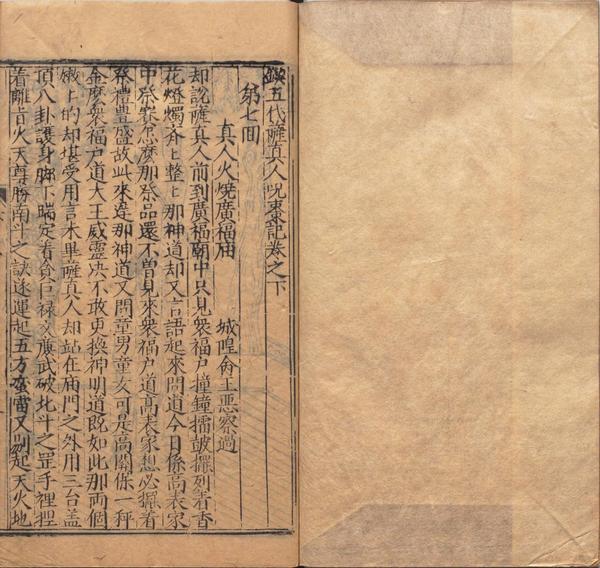 鍥五代薩真人呪棗記卷之下
第七回
真人火燒廣福庙 城隍命王惡察過
却說薩真人前到廣福廟中只見衆福户撞鐘擂鼓擺列着香
花燈燭齐上整上那神道却又言語起來問道今日係高表家
中祭賽怎麽那祭品還不曽見來衆福户道高表家想必擺着
祭禮豊盛故此來遲那神道又問童男童女可是高關係一秤
金麽衆福户道大王威靈决不敢更換神明道既如此那兩個
嫩上的却堪受用言未畢薩真人却站在庙門之外用三台盖
頂八卦護身脚下踹定着貪巨禄文廉武破北斗之罡手裡捏
着離吉火天尊勝南斗之訣逐運起五方蛮雷又別起天火地